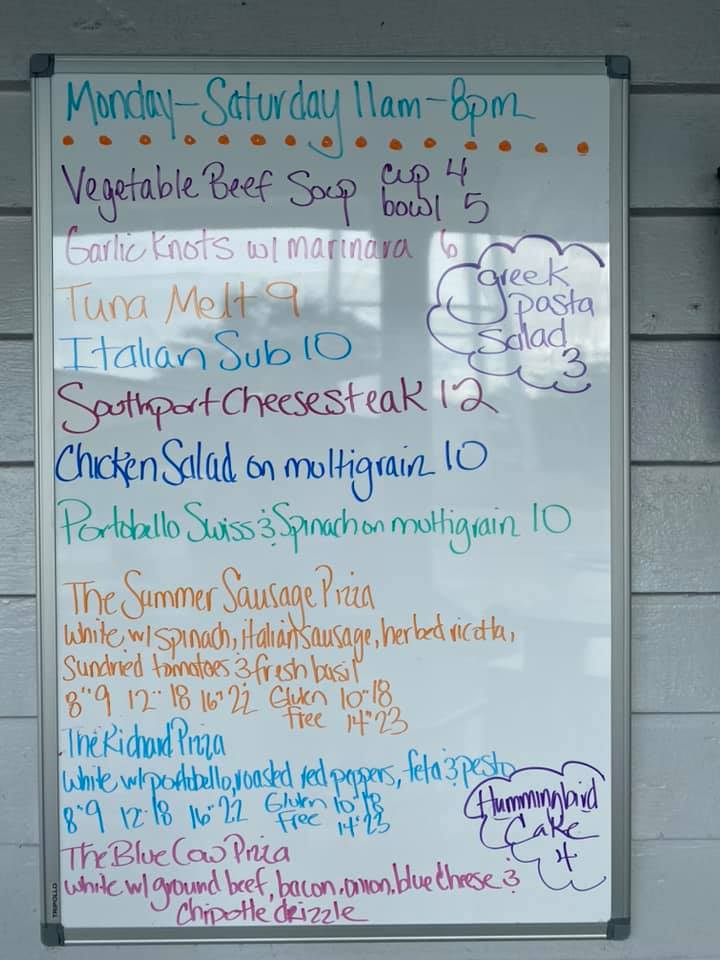 Monday-Saturday 11am-8pm
Vegetable Beef Soup cup 4
bowl 5
Garlic Knots w/ marinara 6
greek
pasta
Salad
3
Tuna Melt 9
Italian Sub 10
Southport Cheesesteak 12
Chicken Salad on multigrain 10
Portobello Swiss & Spinach on multigrain 10
The Summer Sausage Pizza
White w/ spinach, italian sausage, herbed ricotta,
Sundried tomatoes & fresh basil
8" 9 12" 18 16" 22 Gluten 10" 18
free 14" 23
The Richard Pizza
White w/ portobello, roasted red peppers, feta & pesto
8" 9 12" 18 16" 22 Gluten 10" 18
Free 14" 23
Hummingbird
Cake
4
The Blue Cow Pizza
White w/ ground beef, bacon, onion, blue cheese &
Chipotle drizzle
TRIPOLLO